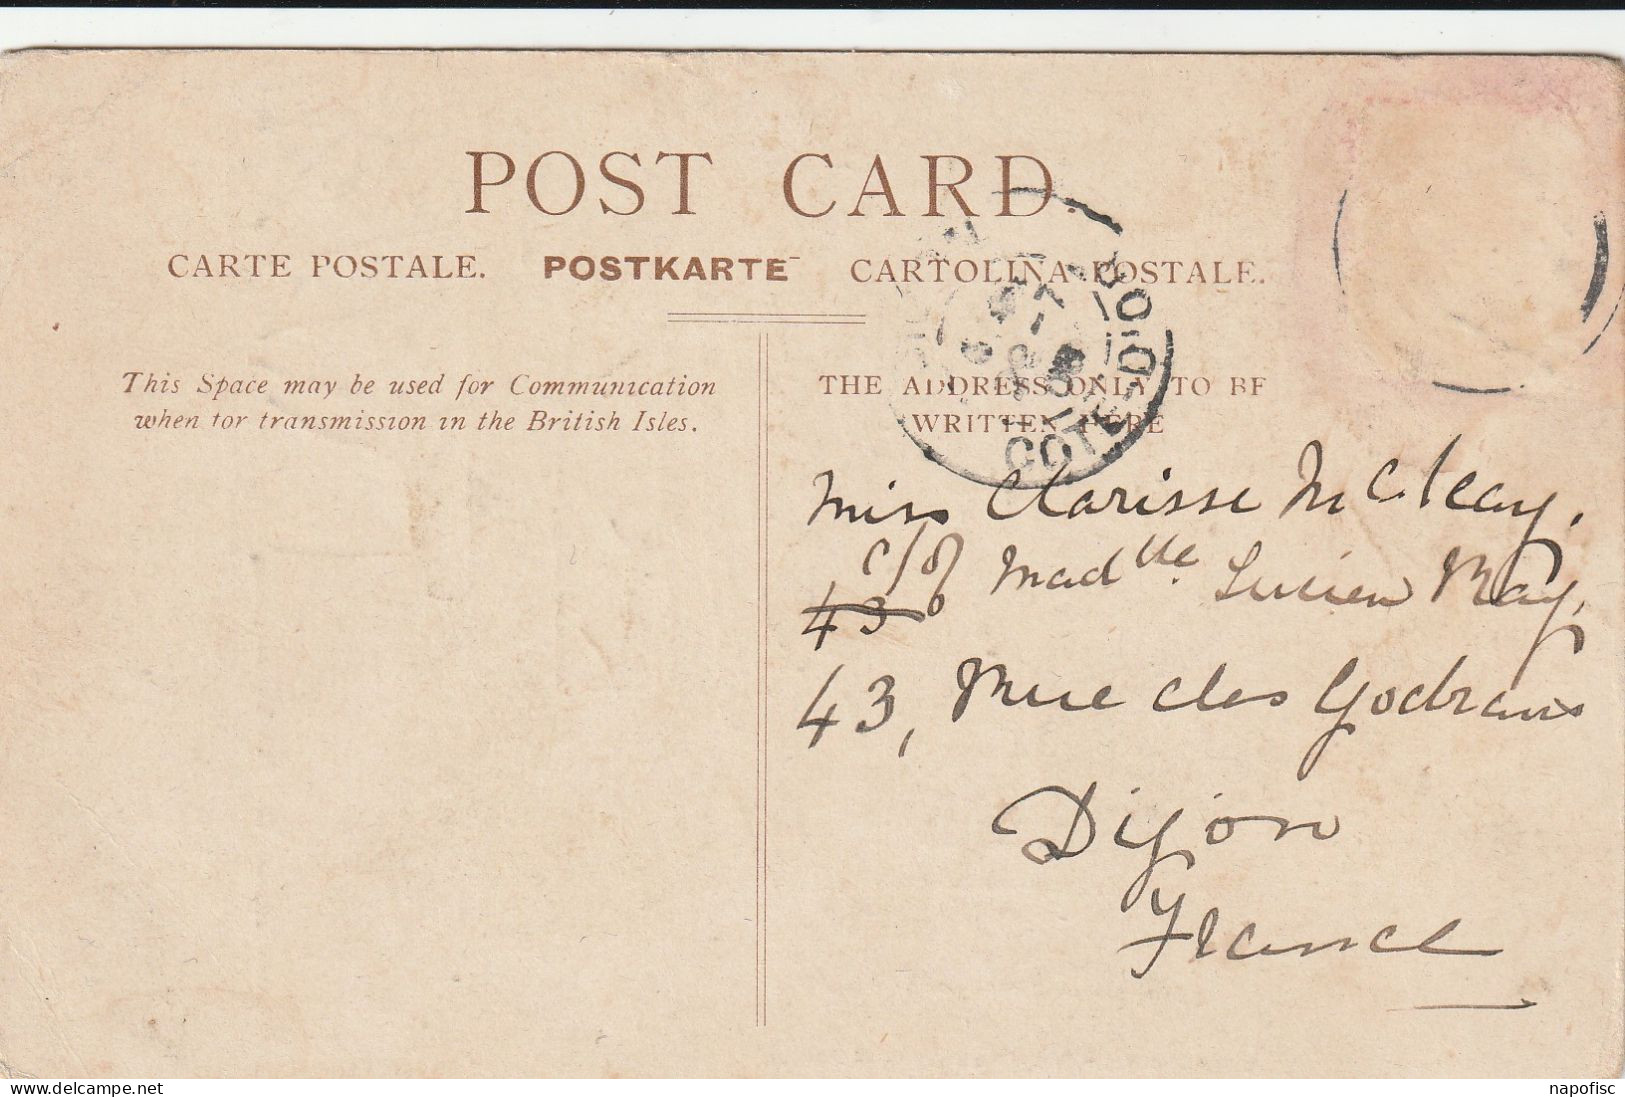 POST CARD.
CARTE POSTALE. POSTKARTE CARTOLINA POSTALE.
This Space may be used for Communication
when for transmission in the British Isles.
THE ADDRESS ONLY TO BE
WRITTEN HERE
COTE-D'OR
Miss Clarisse McCleay,
c/o Madlle. Lucien Ray,
43
43, Rue des Godrans
Dijon
France
www.delcampe.net
napofisc